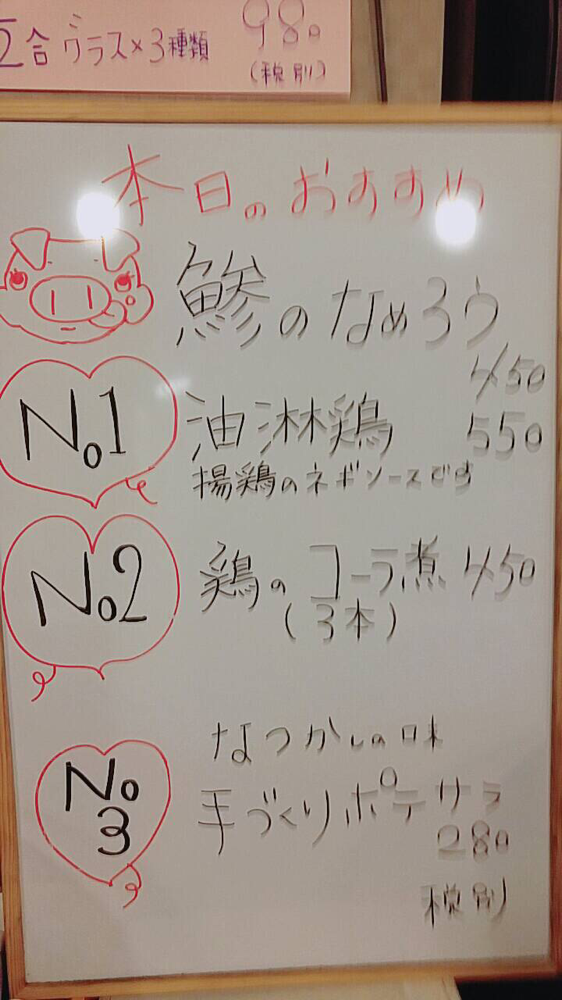 五合グラス×3種類 980
(税別)
本日のおすすめ
鯵のなめろう
450
No1 油淋鶏 550
揚鶏のネギソースです
No2 鶏のコーラ煮 450
(3本)
なつかしの味
No3 手づくりポテサラ
280
税別